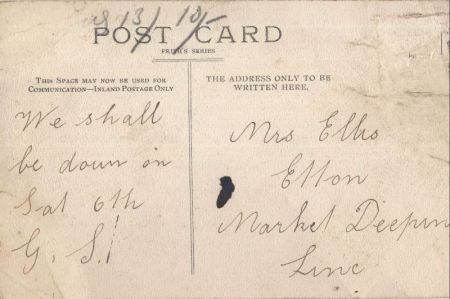 13/ 10/-
POST CARD
FRITH'S SERIES
THIS SPACE MAY NOW BE USED FOR
COMMUNICATION—INLAND POSTAGE ONLY
THE ADDRESS ONLY TO BE
WRITTEN HERE.
We shall
be down on
Sat 6th
G. S.
Mrs Ellis
Etton
Market Deepin
Linc